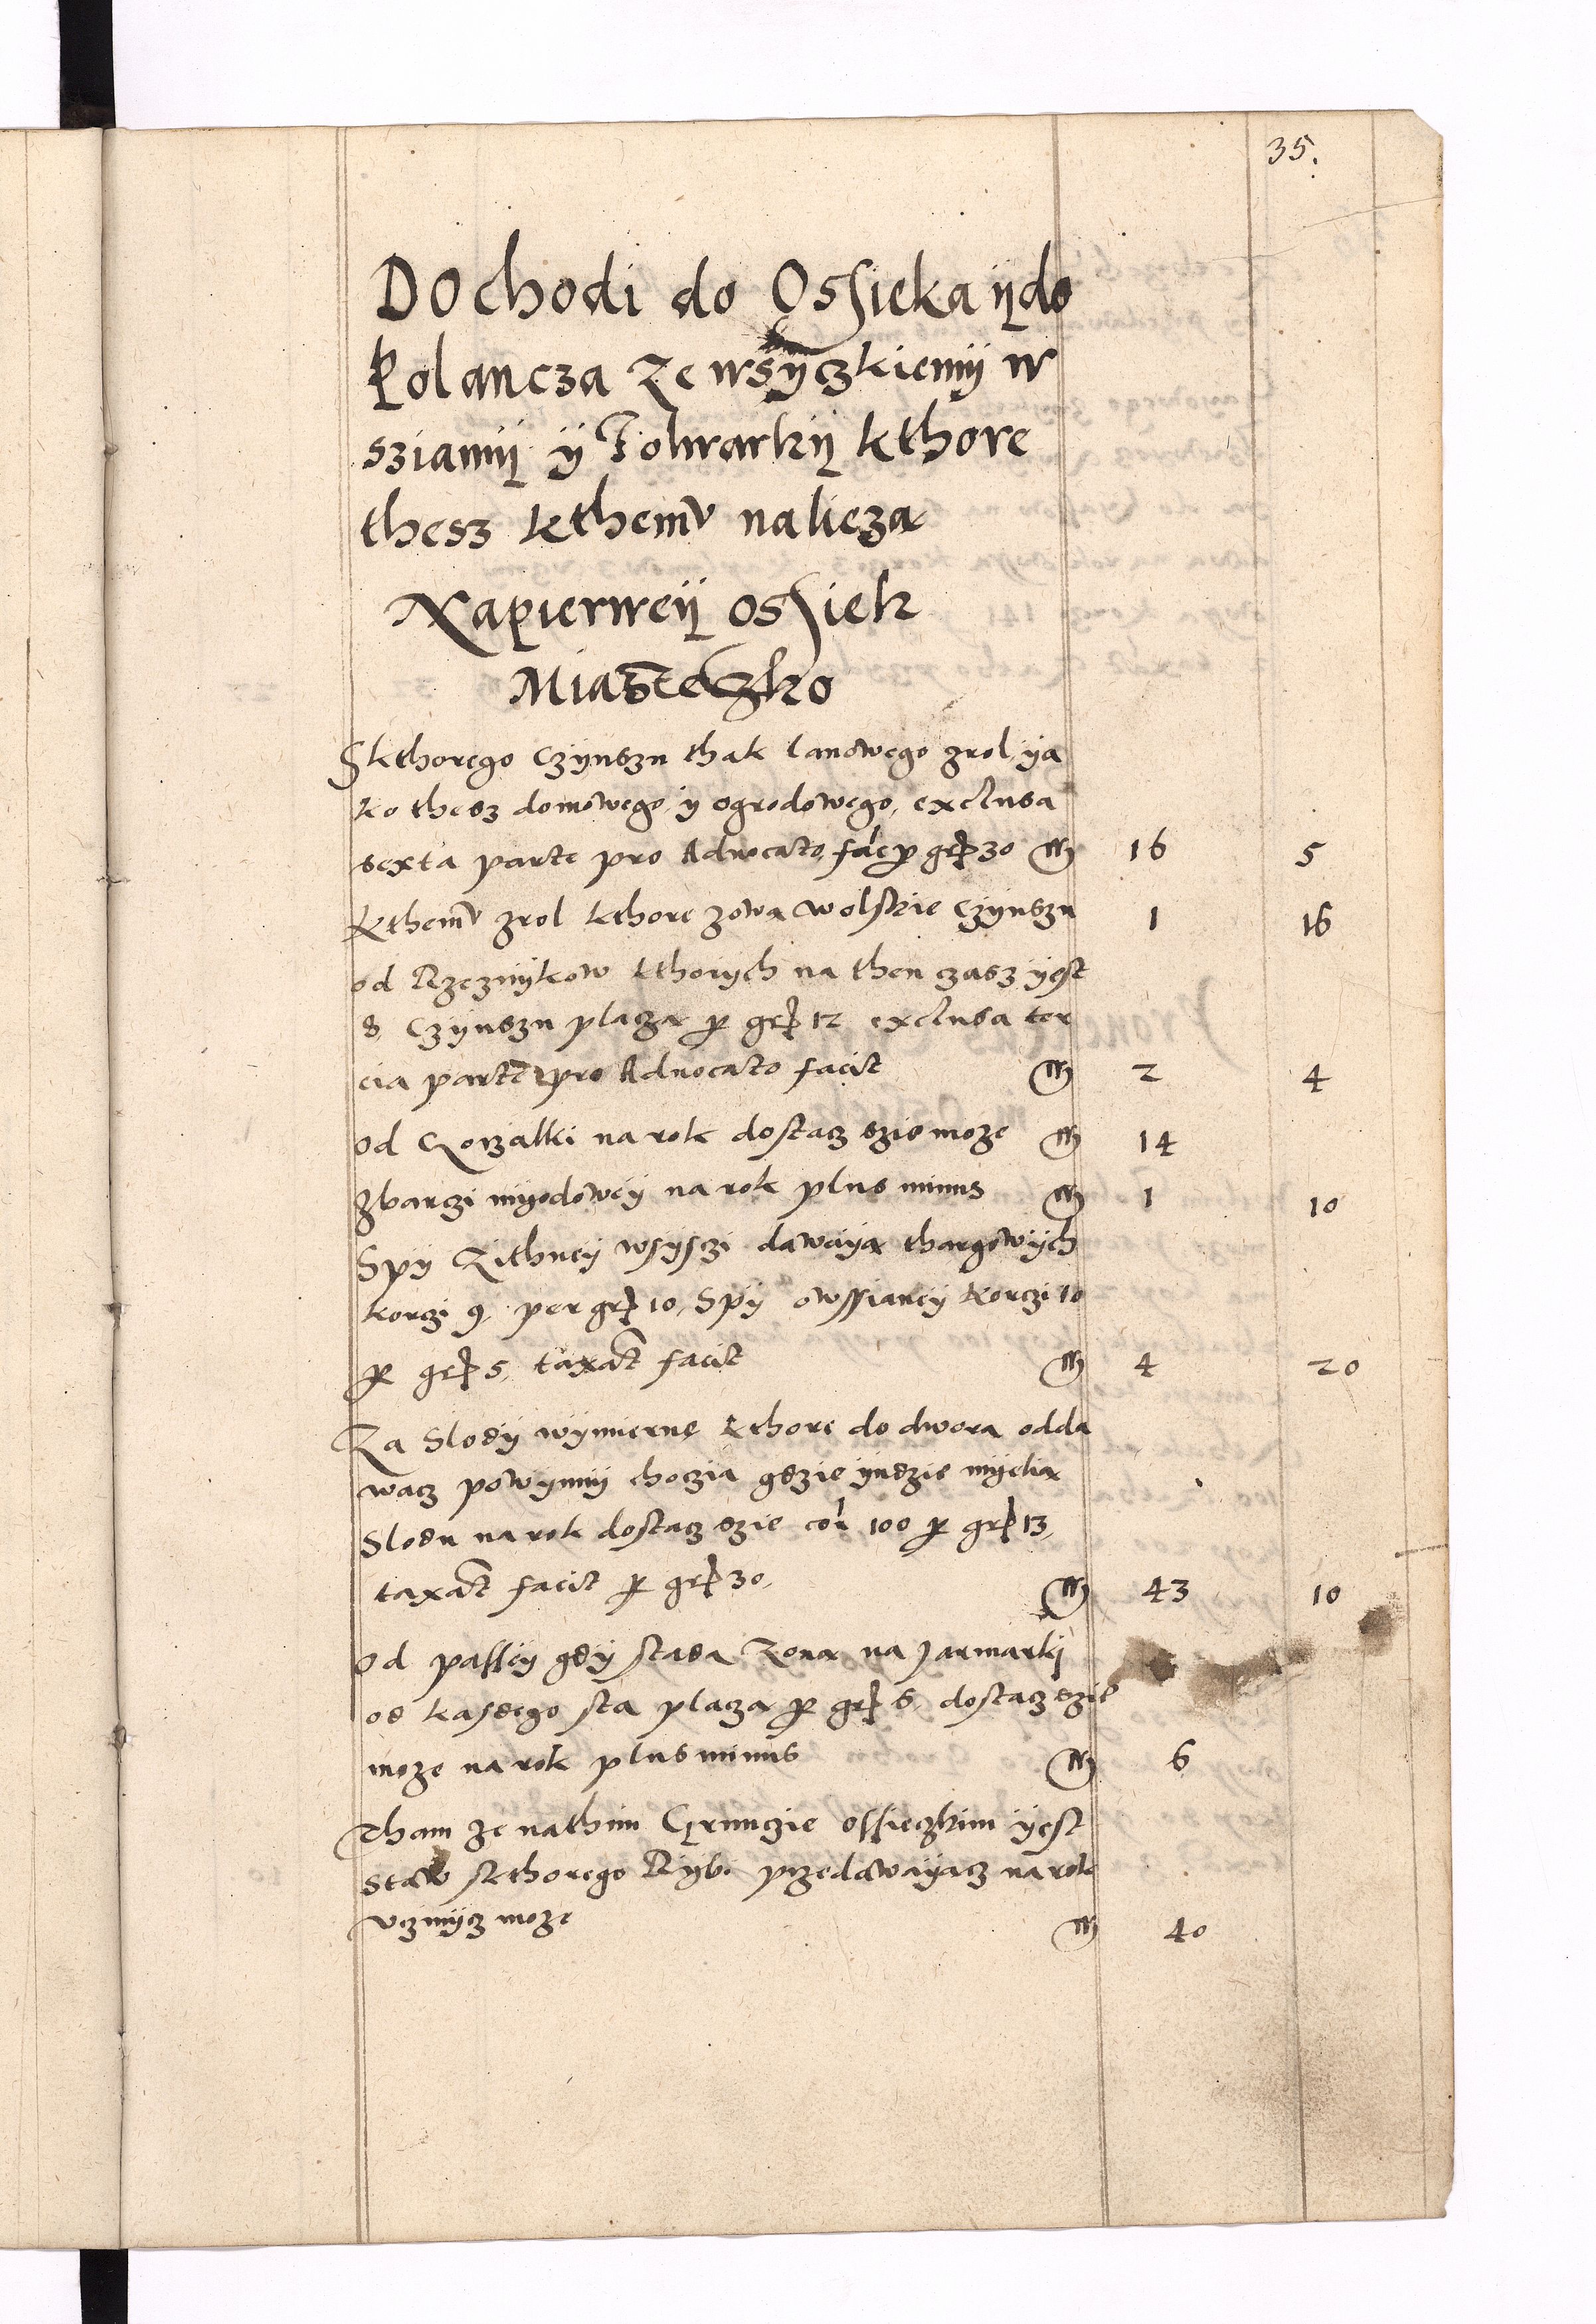 35.
Dochodi do Ossieka ÿdo
Polancza Ze wsÿczkiemÿ w
sziamÿ ÿ Folwarkÿ kthore
thesz kthemv nalicza
Napierweÿ ossiek
Miasteczko
Skthorego Czÿnszu thak lanowego zrol, ÿa
ko thesz domowego, ÿ ogrodowego, exclusa
sexta parte pro Advocato, fac ꝑ gr 30 m 16 5
Kthemv zrol kthore zowa wolskie Czÿnszu 1 16
od Rzeznÿkow kthorÿch na then czasz ÿest
8, Czÿnszu placza ꝑ gr 12 exclusa ter
cia parte pro Advocato facit m 2 4
od Gorzalki na rok dostacz szie moze m 14
Zbarczi mÿodoweÿ na rok plus minus m 1 10
Spÿ Zithneÿ wsÿsczi dawaÿa thargowÿch
korczi 9, per gr 10, Spÿ owssianeÿ korczi 10
ꝑ gr 5, taxat facit m 4 20
Za Slodÿ wÿmierne kthore do dwora odda
wacz powÿnnÿ choczia gdzie ÿndzie mÿelia
Slodu na rok dostacz szie cor 100 ꝑ gr 13,
taxat facit ꝑ gr 30, m 43 10
od passeÿ gdÿ stada Zona na Jarmarkÿ
od kasdego sta placza ꝑ gr 6, dostacz szie
moze na rok plus minus m 6
Tham ze nathim Gruncz​ie ossieczkim ÿest
staw skthorego Rÿbi przedawaÿacz na rok
vczinÿcz moze m 40